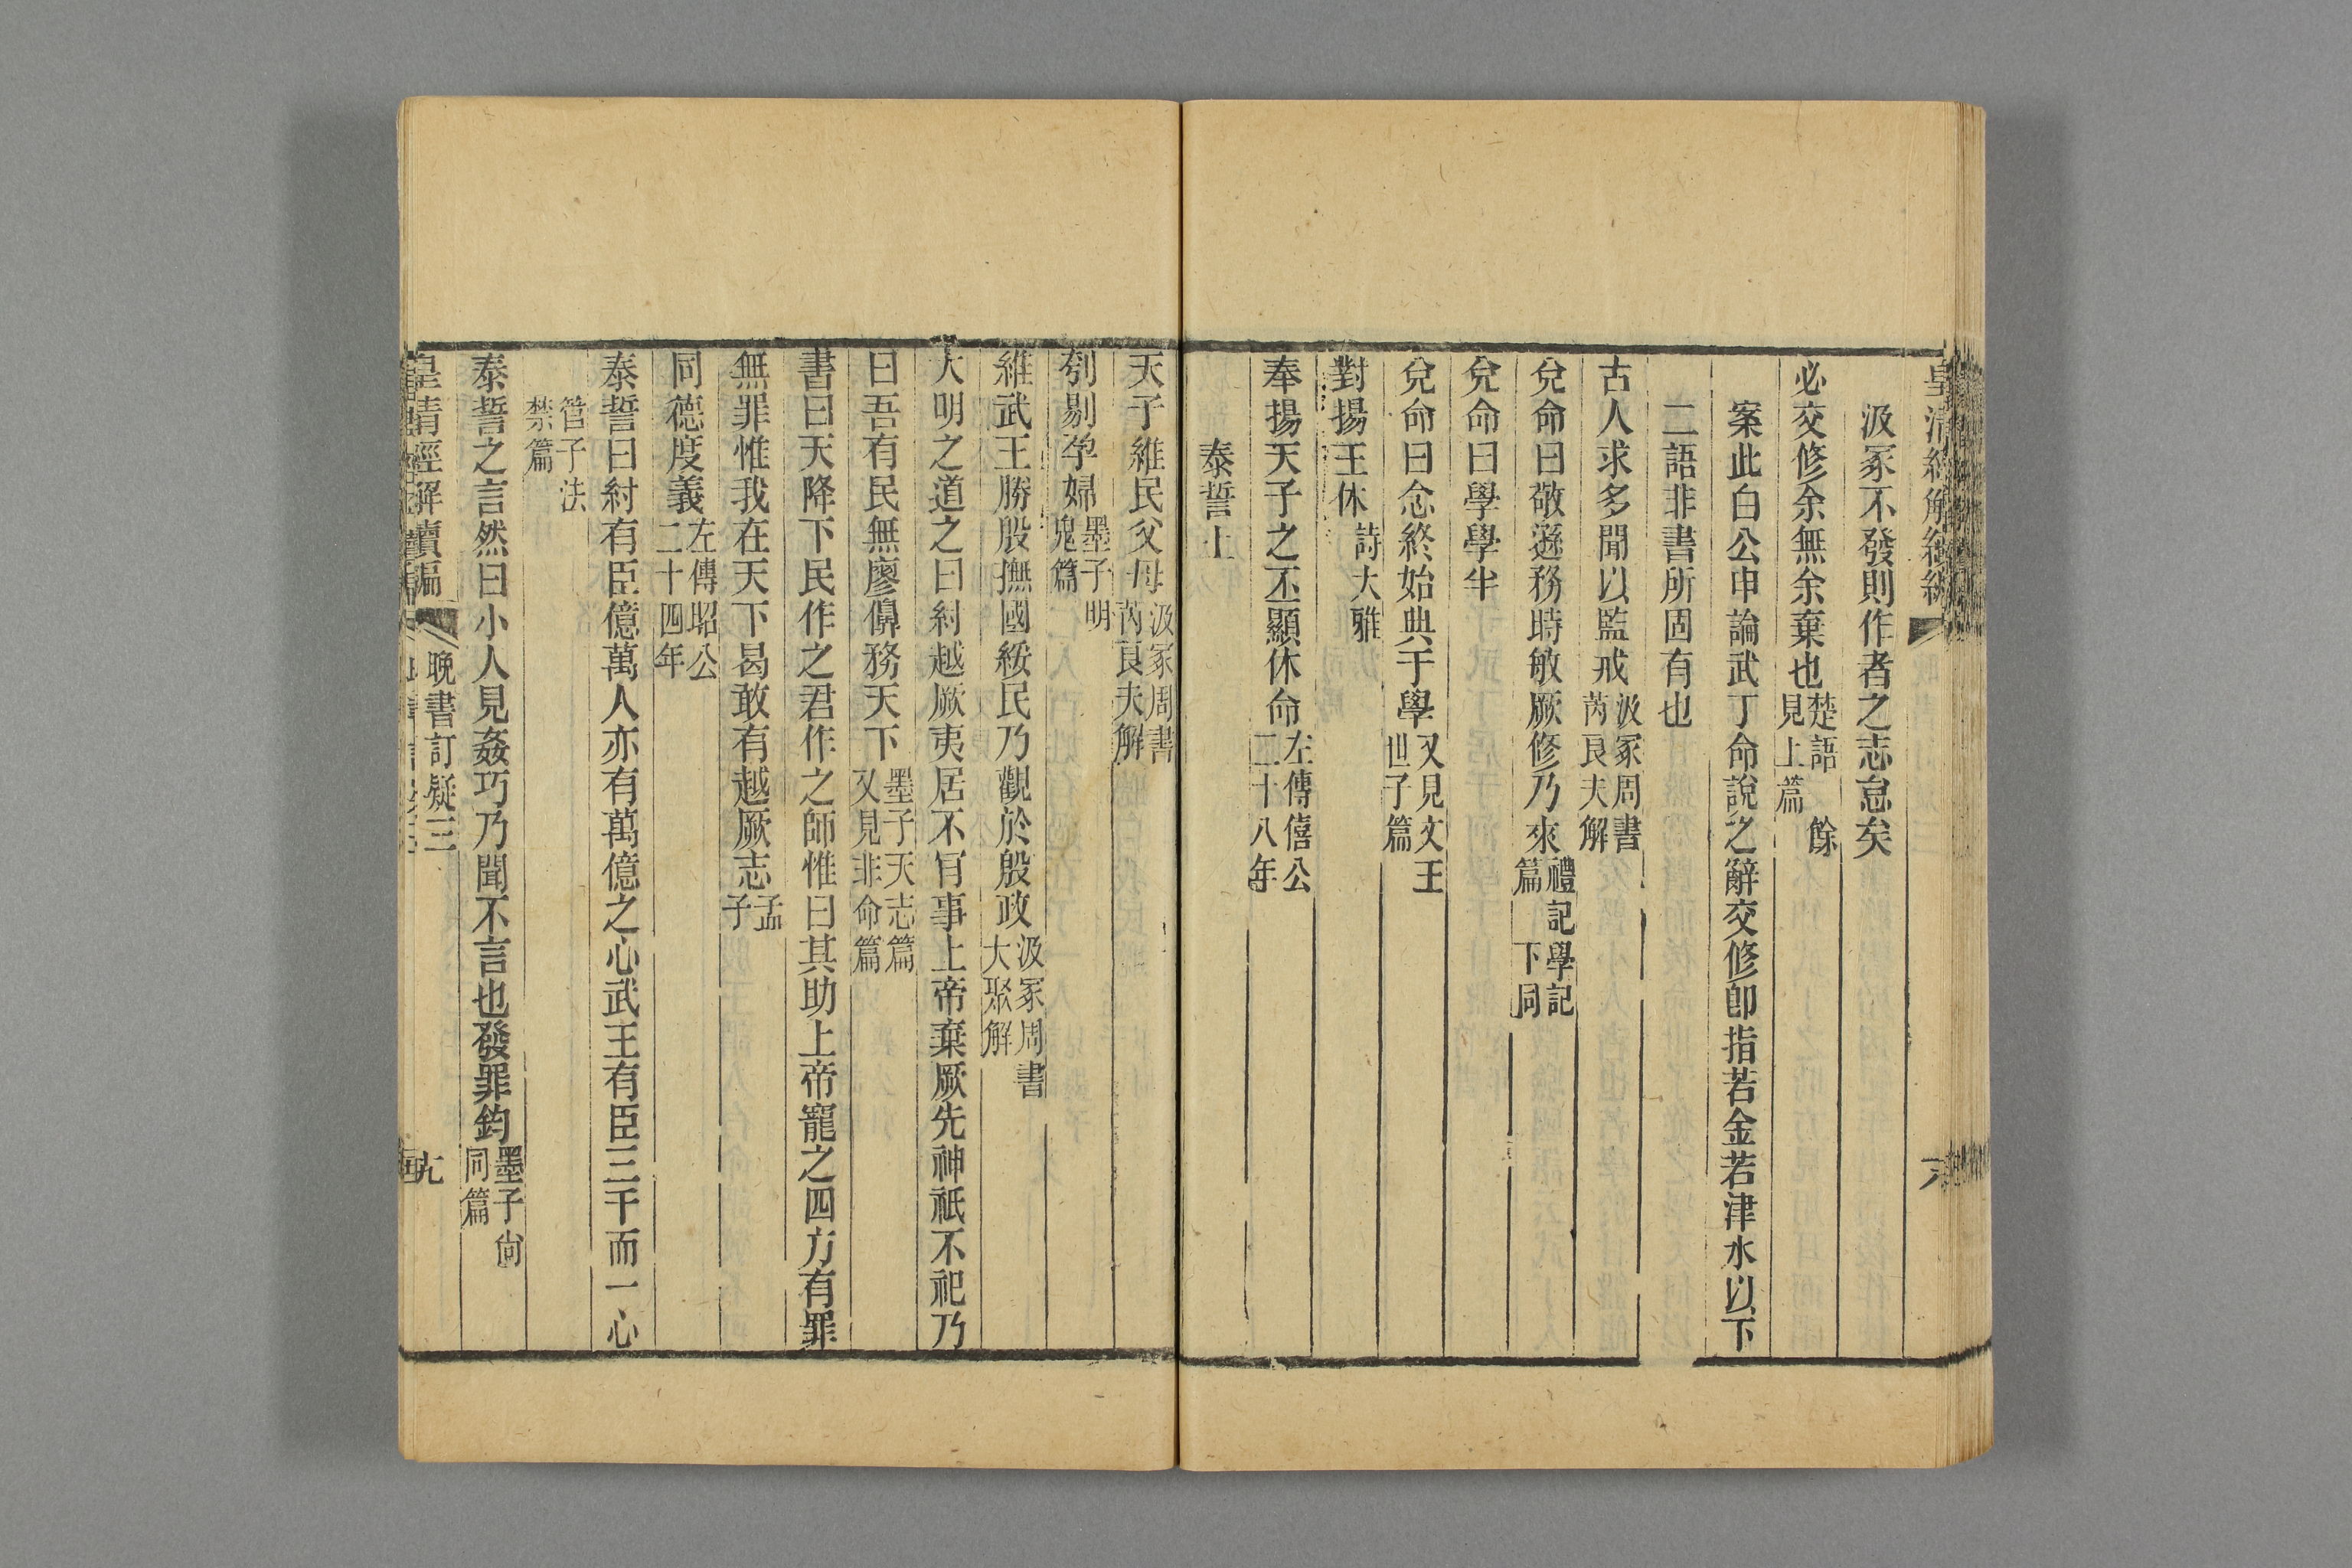 皇清經解續編 六
汲冢不發則作者之志怠矣
必交修余無余棄也楚語餘見上篇
案此白公申論武丁命說之辭交修卽指若金若津水以下
二語非書所固有也
古人求多聞以監戒汲冢周書芮良夫解
兌命曰敬遜務時敏厥修乃來禮記學記篇下同
兌命曰學學半
兌命曰念終始典于學又見文王世子篇
對揚王休詩大雅
奉揚天子之丕顯休命左傳僖公二十八年
泰誓上
天子維民父母汲冢周書芮良夫解
刳剔孕婦墨子明鬼篇
維武王勝殷撫國綏民乃觀於殷政汲冢周書大聚解
大明之道之曰紂越厥夷居不肎事上帝棄厥先神祇不祀乃
曰吾有民無廖𠏿務天下墨子天志篇又見非命篇
書曰天降下民作之君作之師惟曰其助上帝寵之四方有罪
無罪惟我在天下曷敢有越厥志孟子
同德度義左傳昭公二十四年
泰誓曰紂有臣億萬人亦有萬億之心武王有臣三千而一心
管子法禁篇
泰誓之言然曰小人見姦巧乃聞不言也發罪鈞墨子尚同篇
皇清經解續編 晚書訂疑三 九